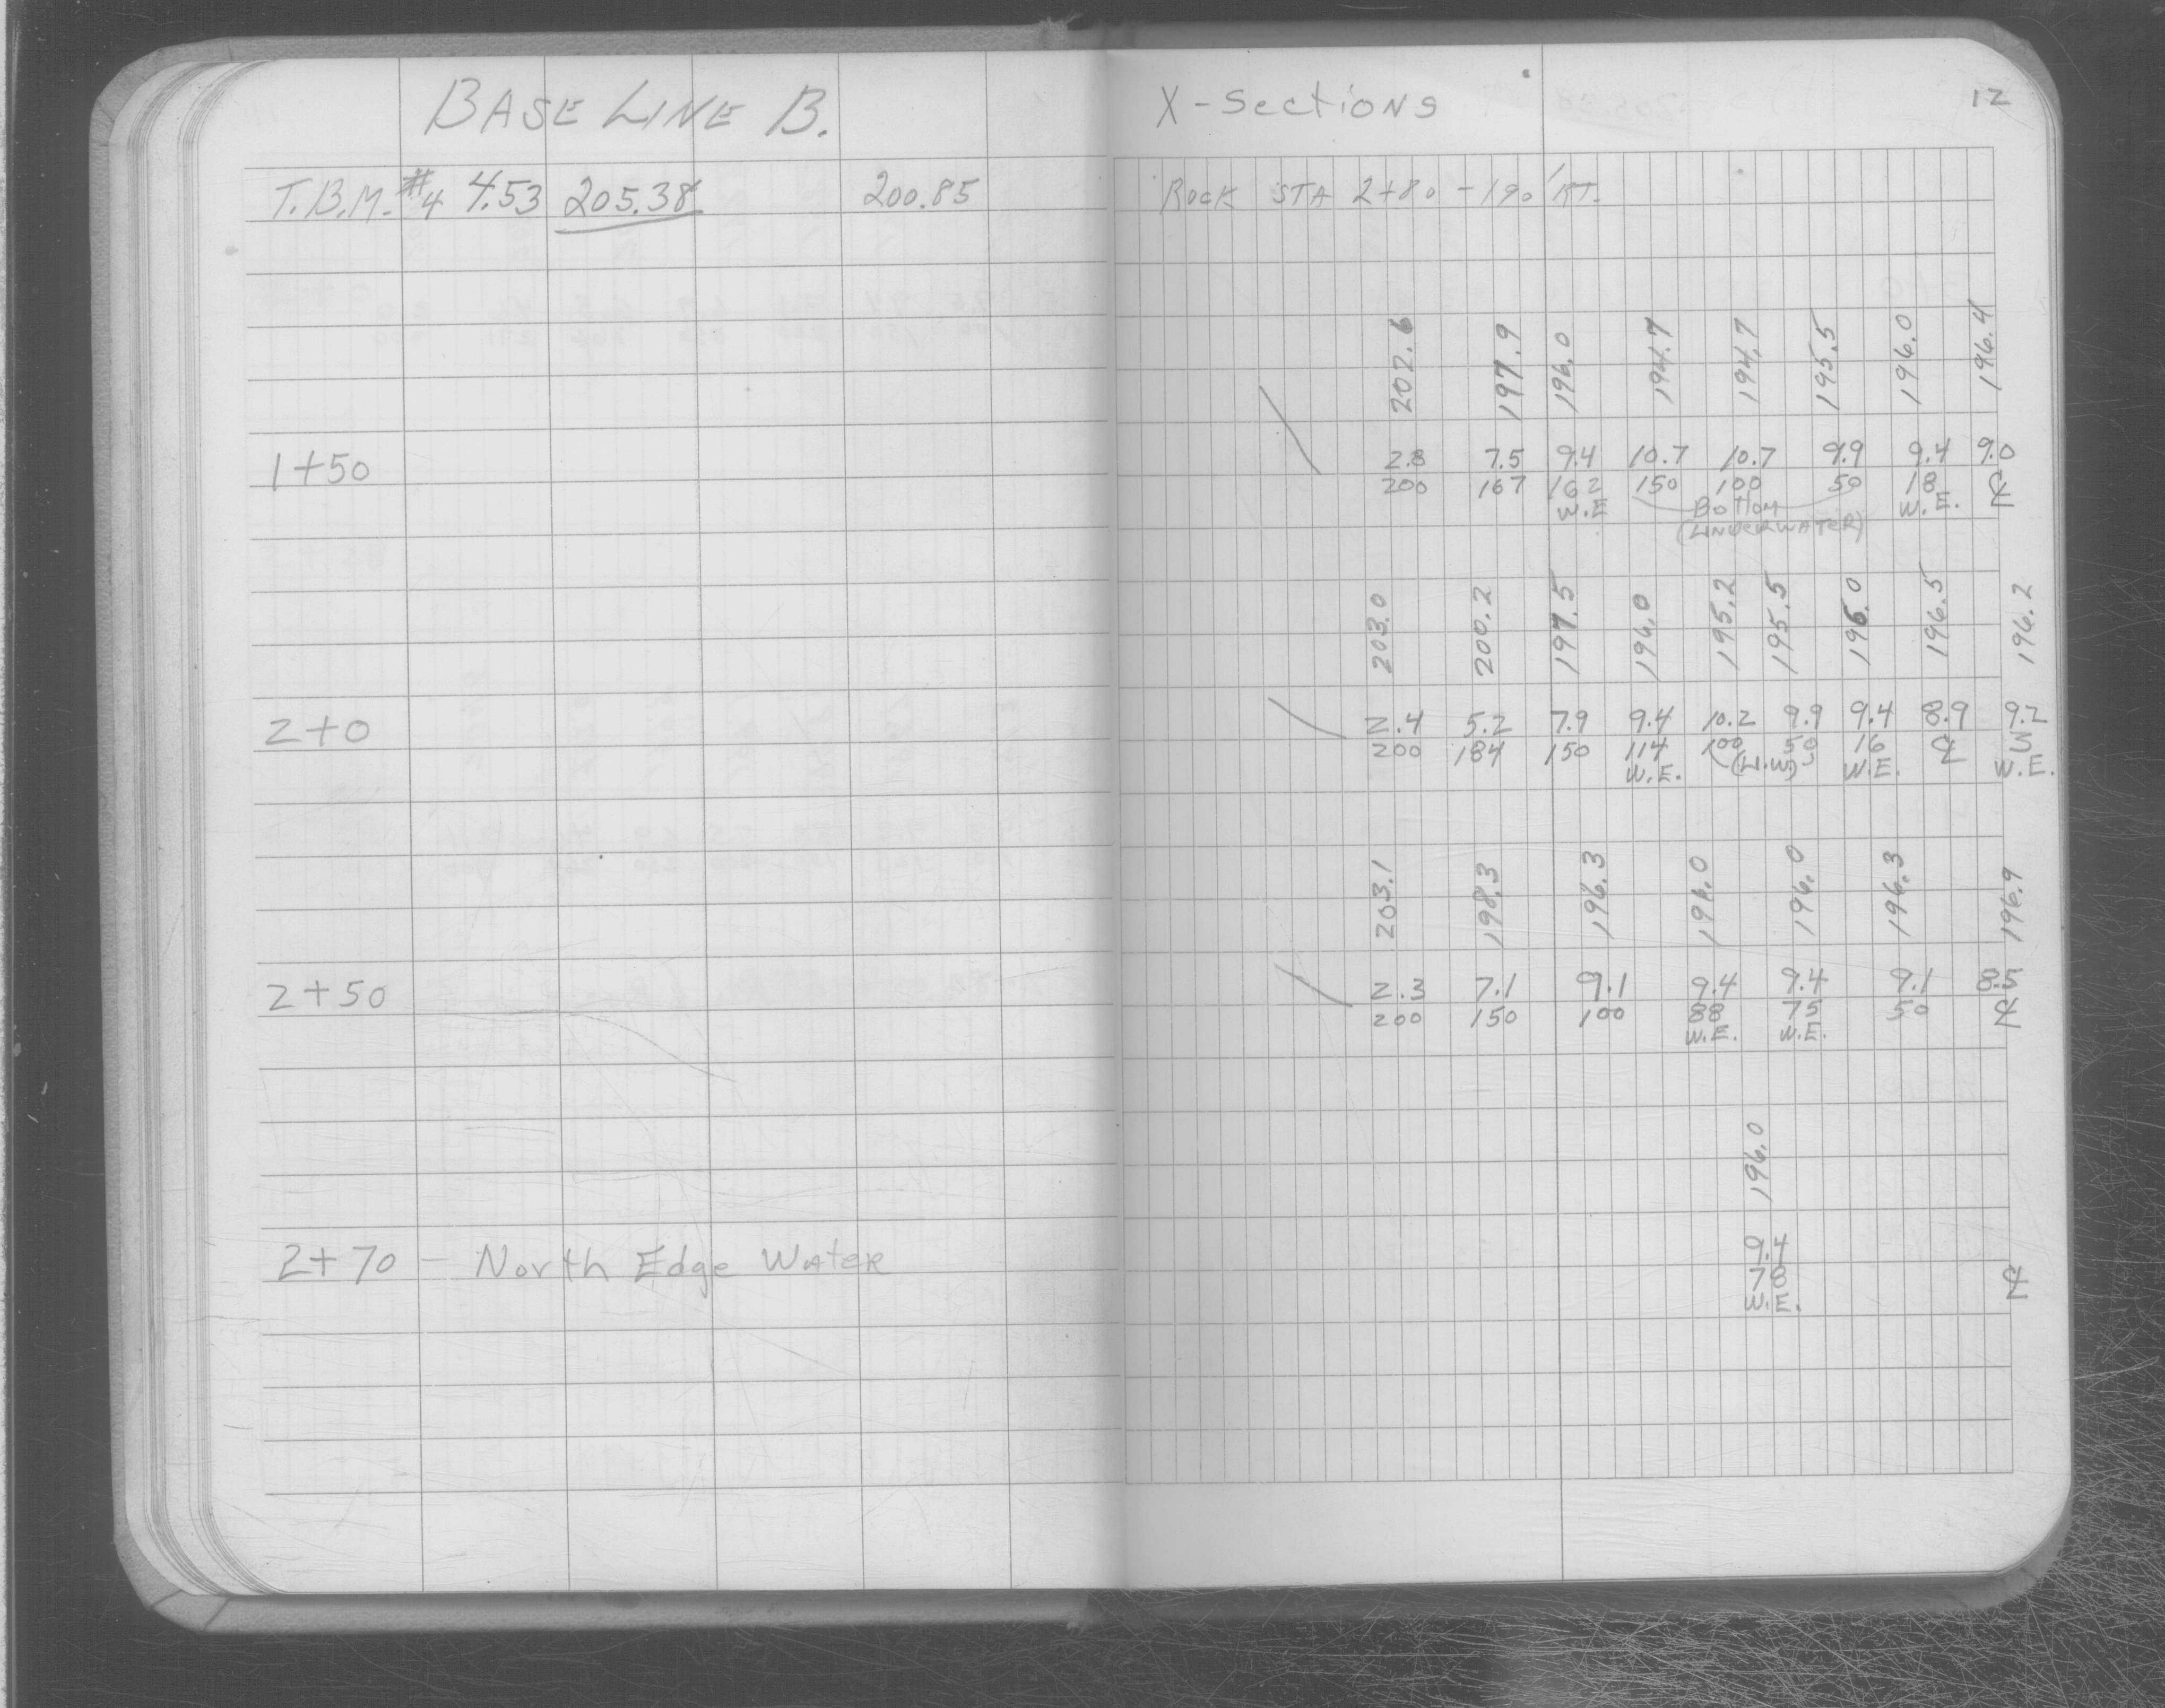 BASE LINE B.
T.B.M. #4 4.53 205.38 200.85
1+50
2+0
2+50
2+70 - North Edge Water
X-Sections 12
ROCK STA 2+80 - 190' RT.
202.6 197.9 196.0 194.7 194.7 195.5 196.0 196.4
2.8 7.5 9.4 10.7 10.7 9.9 9.4 9.0
200 167 162 150 100 50 18 ℄
W.E. Bottom W.E.
(UNDERWATER)
203.0 200.2 197.5 196.0 195.2 195.5 196.0 196.5 196.2
2.4 5.2 7.9 9.4 10.2 9.9 9.4 8.9 9.2
200 184 150 114 100 50 16 ℄
W.E. (U.W) W.E. W.E.
203.1 198.3 196.3 196.0 196.0 196.3 196.9
2.3 7.1 9.1 9.4 9.4 9.1 8.5
200 150 100 88 75 50 ℄
W.E. W.E.
196.0
9.4
78 ℄
W.E.